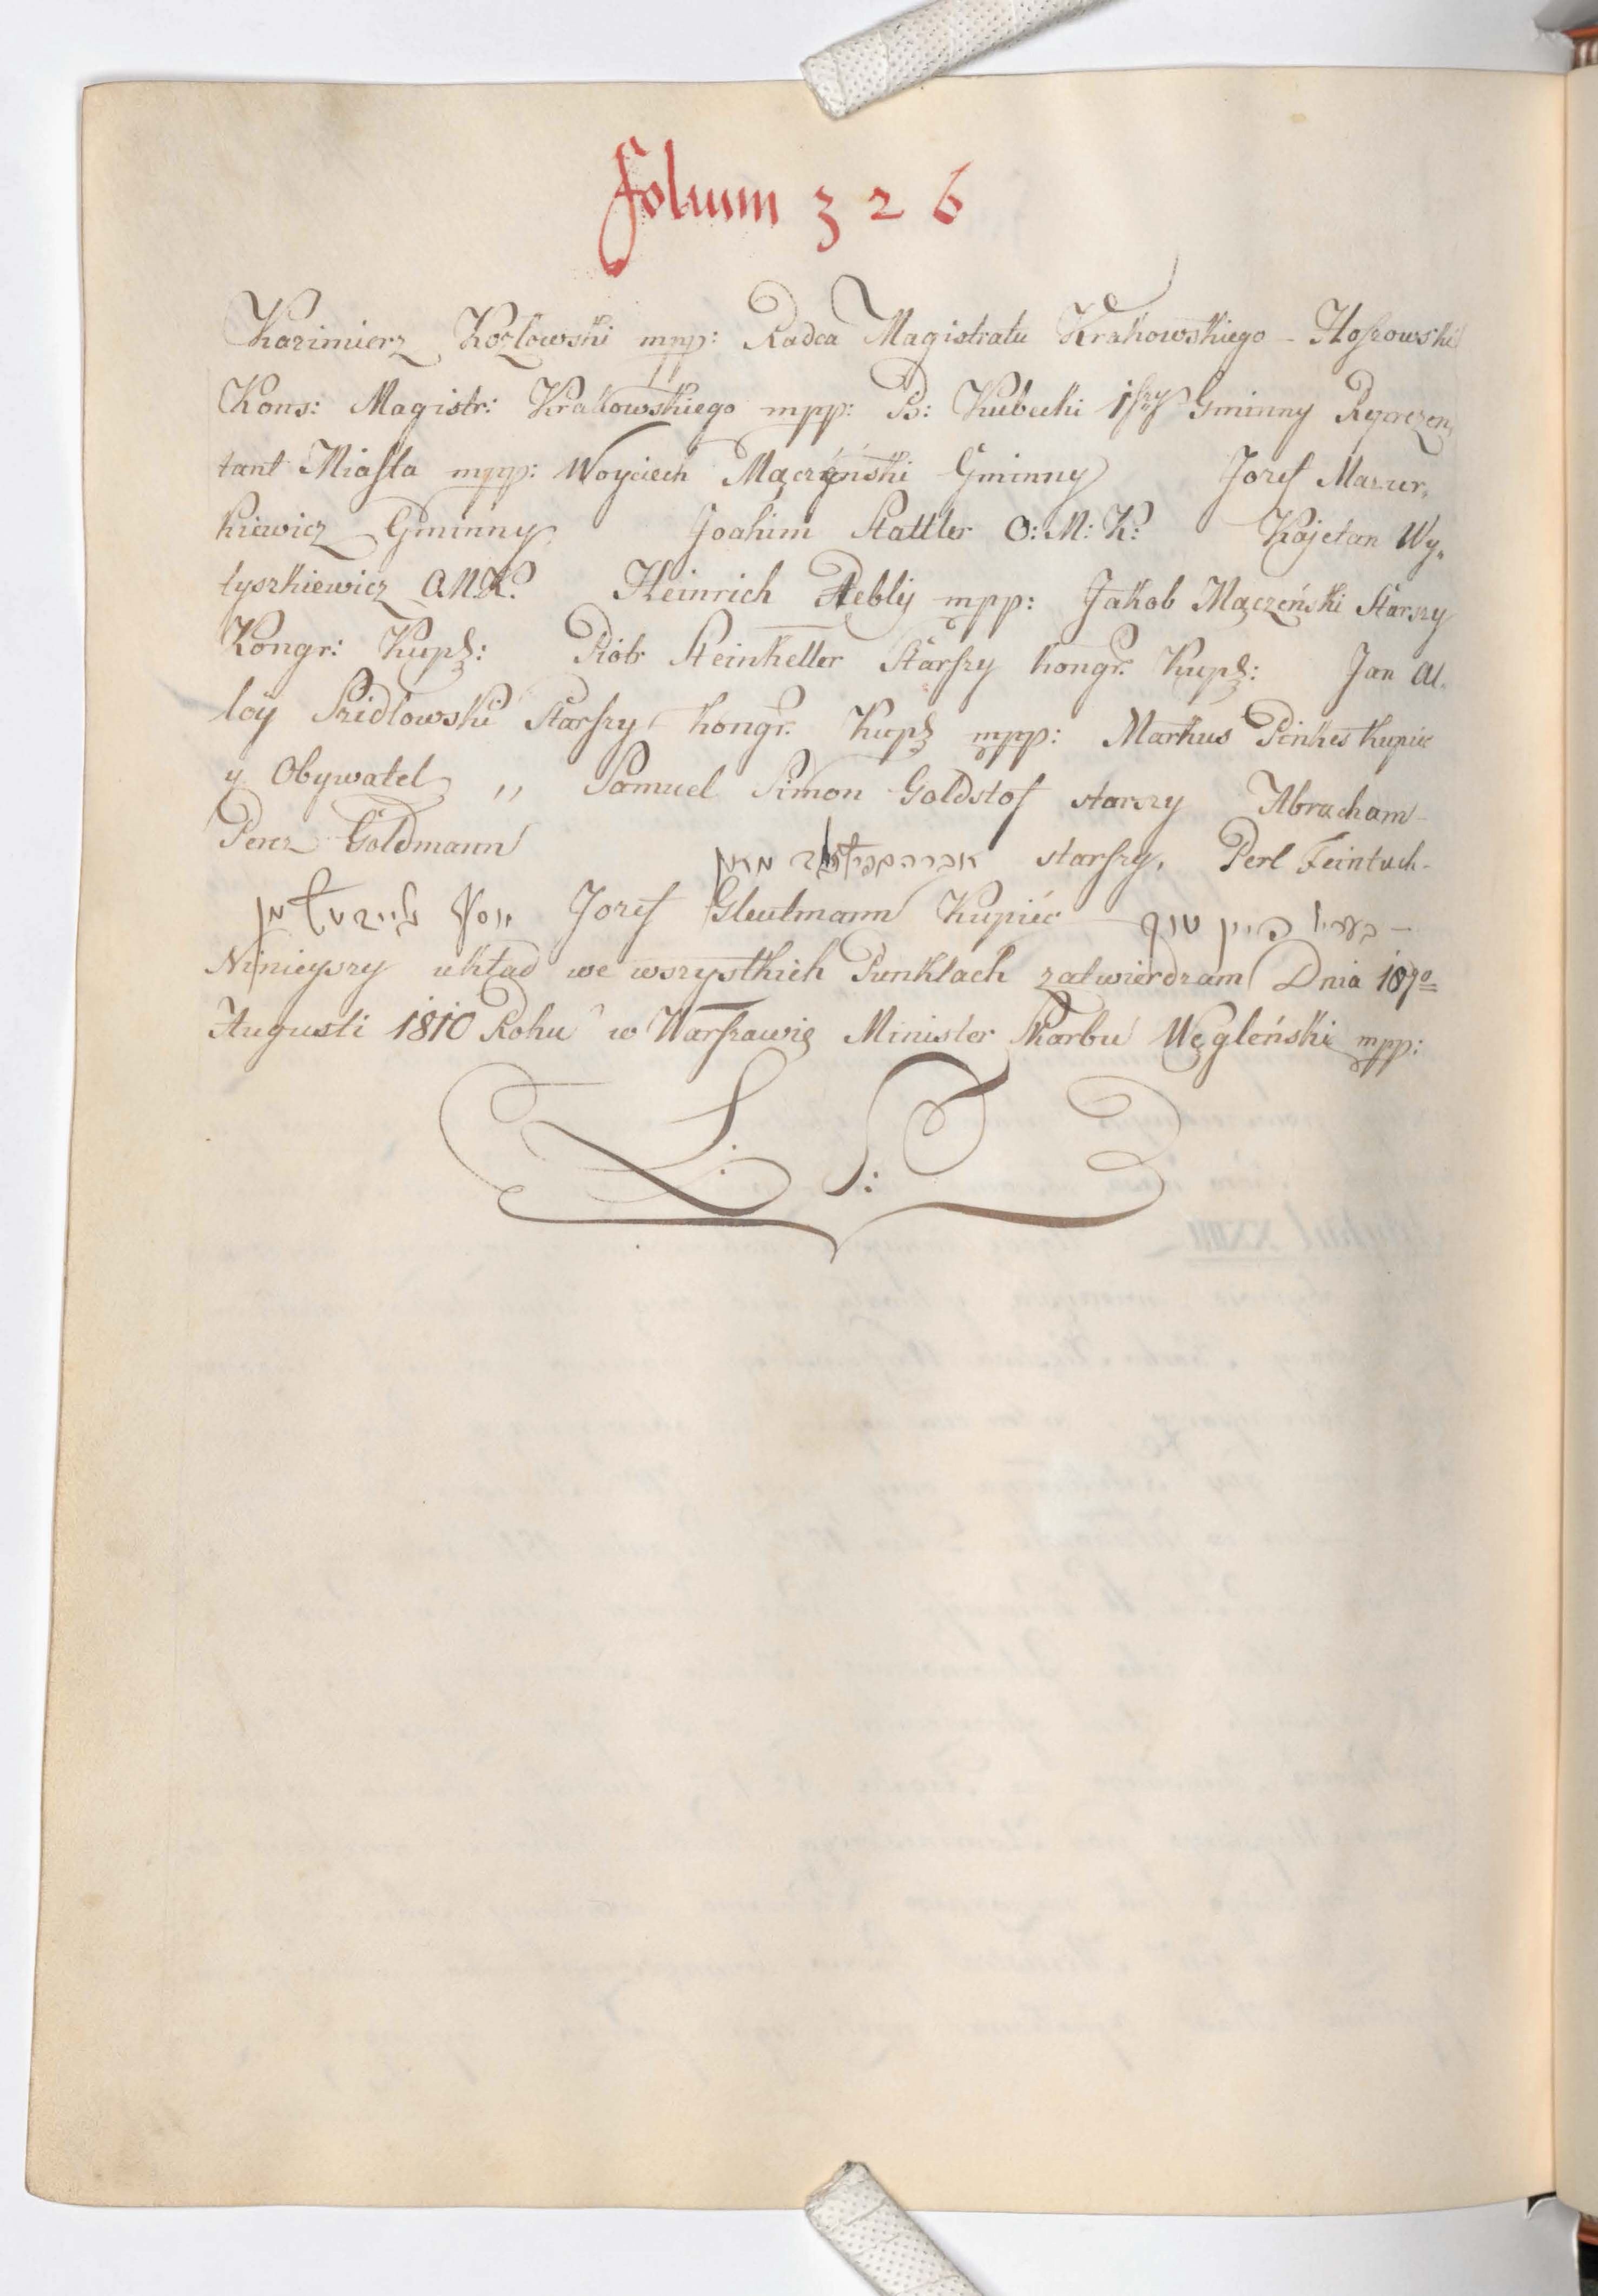 folium 326
Kazimierz Kozlowski mpp: Radca Magistratu Krakowskiego - Hoszowski
Kons: Magistr: Krakowskiego mpp: B: Kubecki 1szy Gminny Reprezen,
tant Miasta mpp: Woyciech Mączyński Gminny Jozef Mazur,
kiewicz Gminny Joahim Stattler O: M: K: Kajetan Wy,
tyszkiewicz O.M.K. Heinrich mpp: Jakob Mączeński Starszy
Kongr: Kupś: Piotr Steinkeller Starszy kongr: Kupś: Jan Al,
loy Szidlowski Starszy kongr. Kupś mpp: Markus Pinkes kupiec
y Obywatel ,, Samuel Simon Goldstof starszy Abracham
Perez Goldmann starszy, Perl Feintuch -
יוסף Jozef Gleutmann Kupiéc בערל פיין טוך -
Ninieyszy układ we wszystkich Punktach zatwierdzam Dnia
Augusti 1810 Roku w Warszawie Minister Skarbu Węgleński mpp:
L. S: